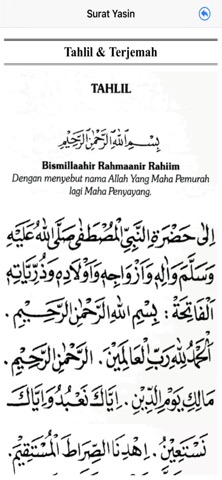 Surat Yasin
Tahlil & Terjemah
TAHLIL
بِسْمِ اللهِ الرَّحْمٰنِ الرَّحِيْمِ
Bismillaahir Rahmaanir Rahiim
Dengan menyebut nama Allah Yang Maha Pemurah
lagi Maha Penyayang.
اِلَى حَضْرَةِ النَّبِيِّ الْمُصْطَفٰى صَلَّى اللهُ عَلَيْهِ
وَسَلَّمَ وَاٰلِهِ وَاَزْوَاجِهِ وَاَوْلَادِهِ وَذُرِّيَّاتِهِ
الْفَاتِحَةُ : بِسْمِ اللهِ الرَّحْمٰنِ الرَّحِيْمِ .
اَلْحَمْدُ لِلّٰهِ رَبِّ الْعَالَمِيْنَ . الرَّحْمٰنِ الرَّحِيْمِ .
مَالِكِ يَوْمِ الدِّيْنِ . اِيَّاكَ نَعْبُدُ وَاِيَّاكَ
نَسْتَعِيْنُ . اِهْدِنَا الصِّرَاطَ الْمُسْتَقِيْمَ .